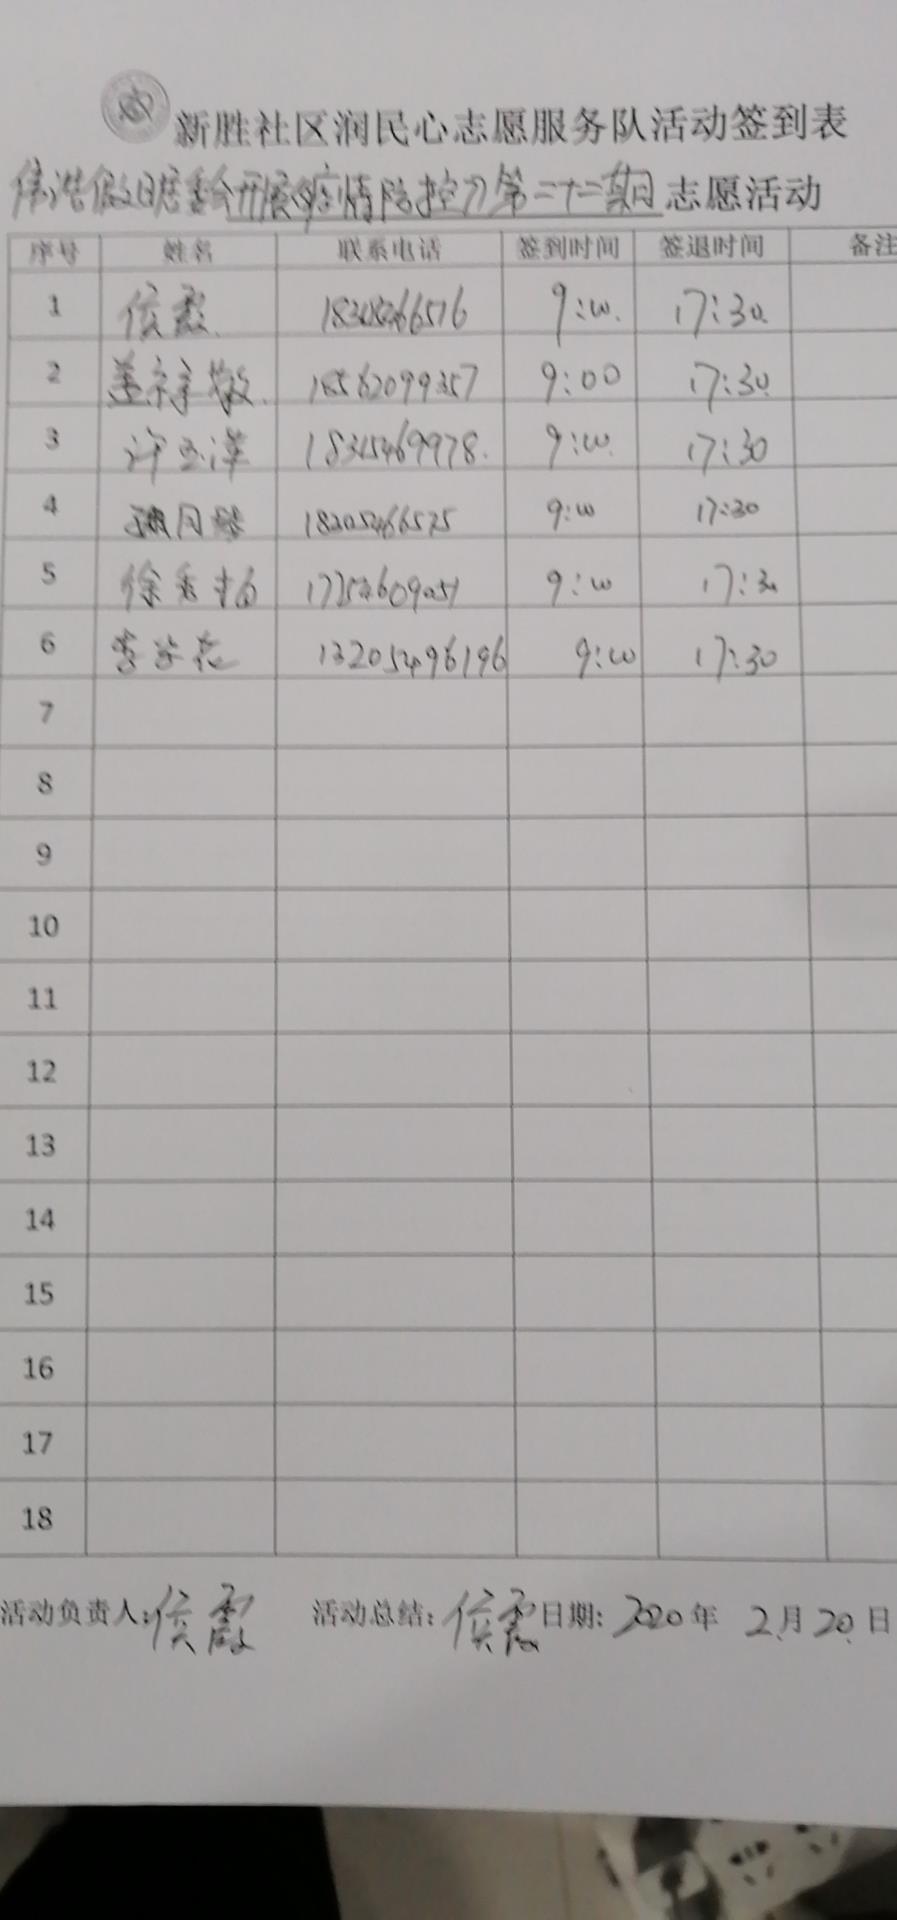 新胜社区润民心志愿服务队活动签到表
伟浩假日居委会开展疫情防控 第二十二期 志愿活动
序号 姓名 联系电话 签到时间 签退时间 备注
1 侯霞 9:00 17:30
2 盖祥敏 18562099357 9:00 17:30
3 许玉萍 18315469978 9:00 17:30
4 18205466575 9:00 17:30
5 徐秀梅 9:00 17:30
6 李学花 13205496196 9:00 17:30
7
8
9
10
11
12
13
14
15
16
17
18
活动负责人:侯霞 活动总结:侯霞 日期:2020年 2月20日